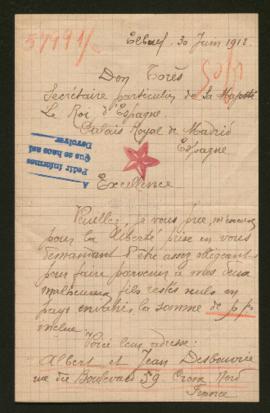 57191/1
Elbeuf, 30 Juin 1918
Don Torès
Secrétaire particulier de Sa Majesté
Le Roi d'Espagne
Palais Royal de Madrid
Espagne
A
Pedir Informes
Que se haos asi
Devolver
Excellence
Veuillez, je vous prie, m'excuser
pour la liberté prise en vous
demandant d'être assez obligeant
pour faire parvenir à mes deux
malheureux fils restés seuls en
pays envahis, la somme de
incluse.
Voici leur adresse:
Albert et Jean Desbouvrie
rue du Boulevard 59 Croix Nord
France